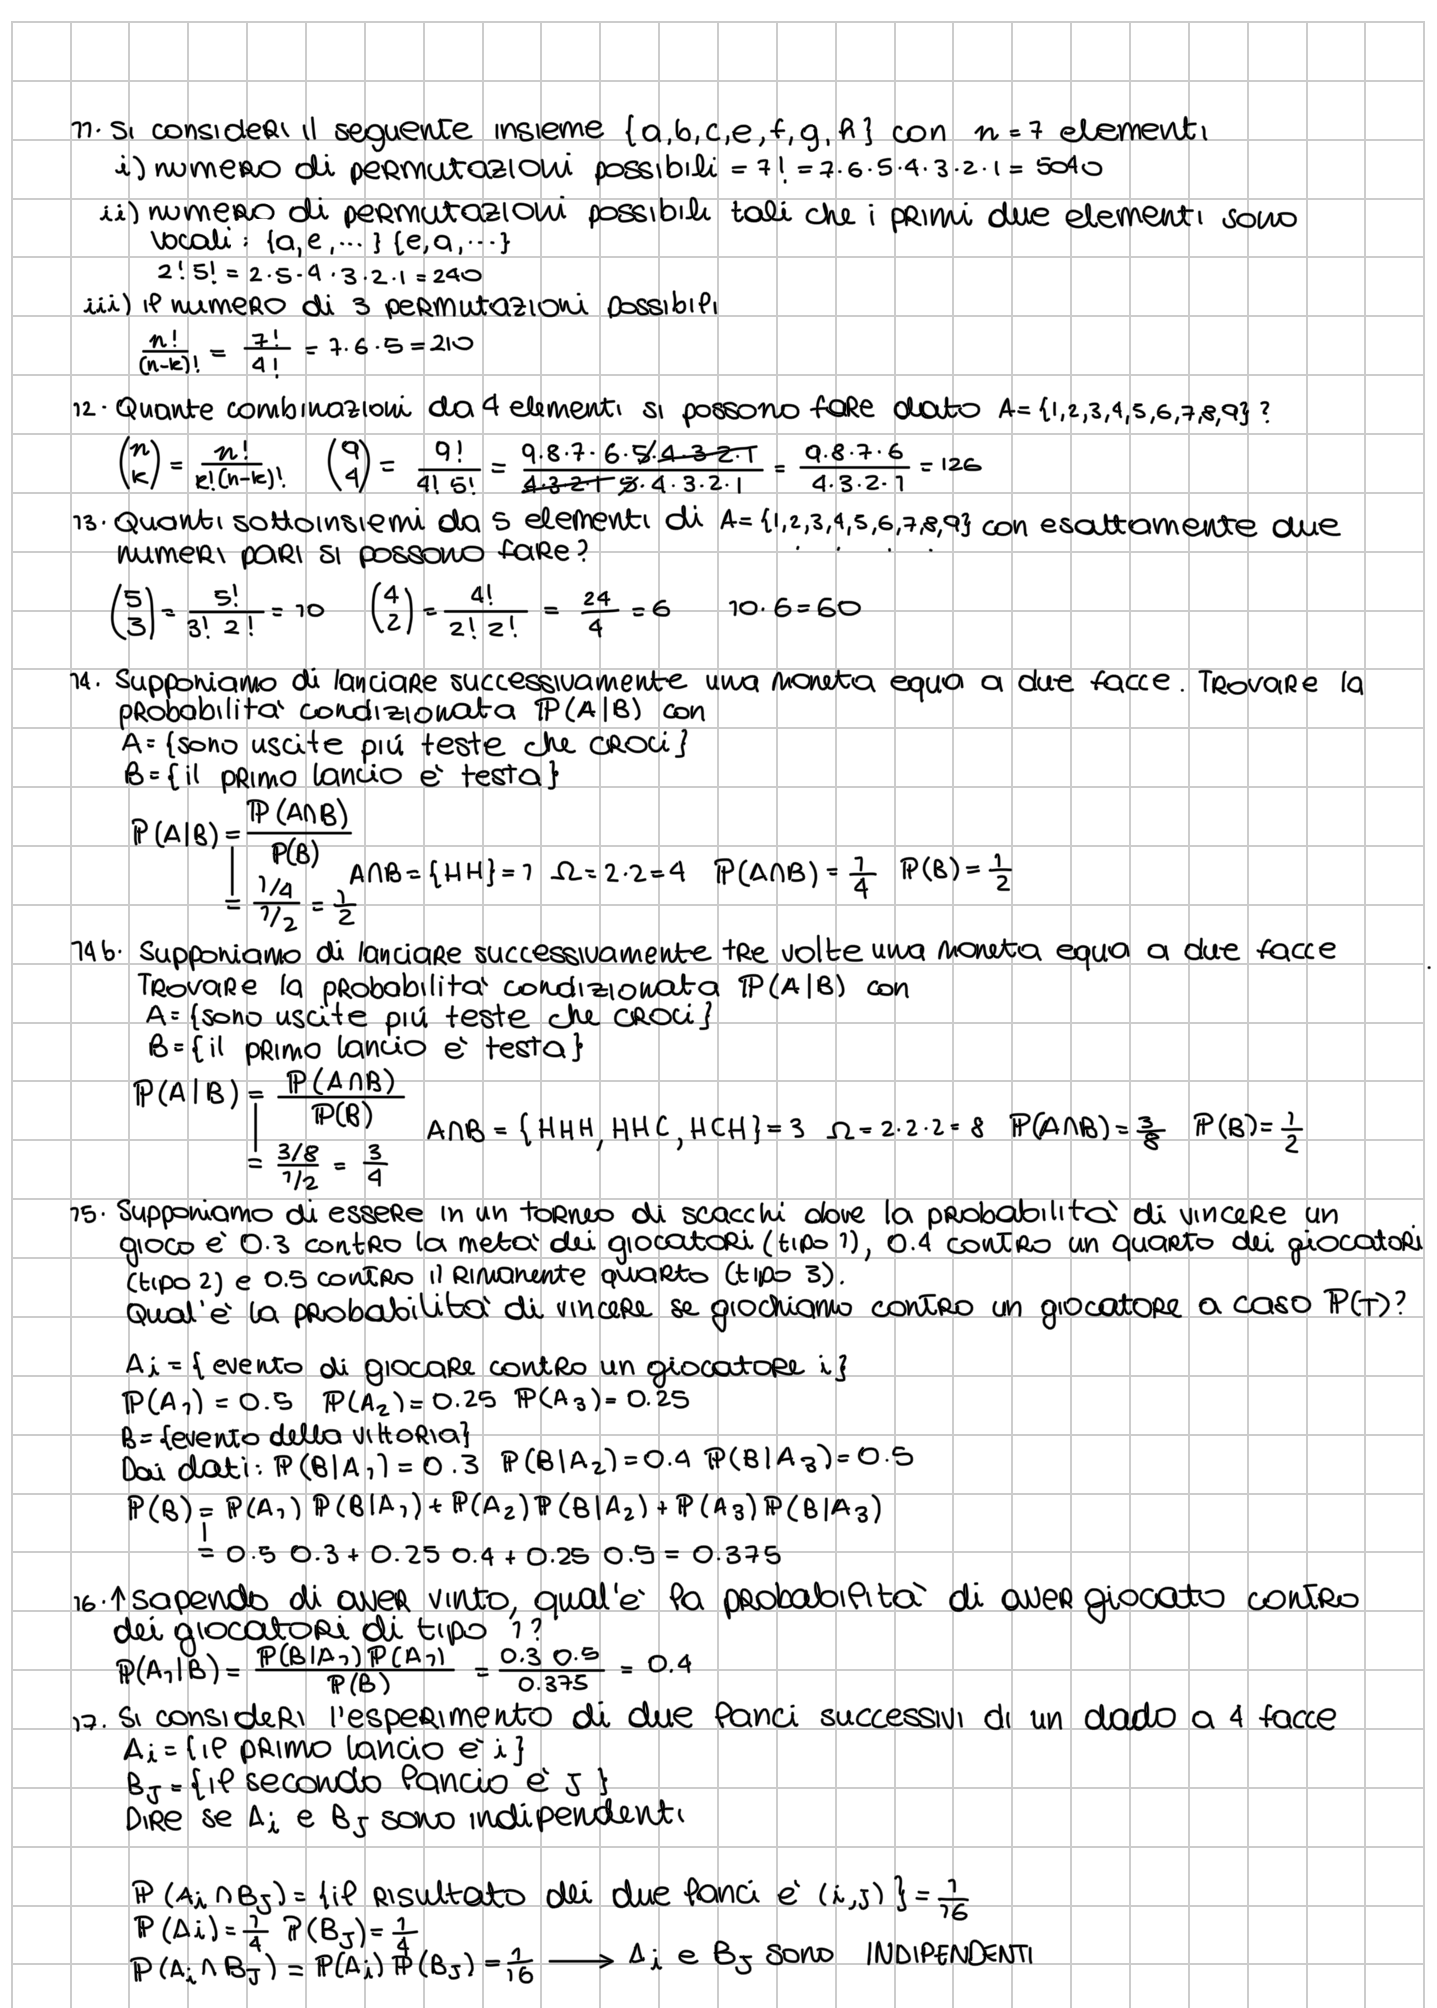 11. Si consideri il seguente insieme {a,b,c,e,f,g,h} con n = 7 elementi
i) numero di permutazioni possibili = 7! = 7·6·5·4·3·2·1 = 5040
ii) numero di permutazioni possibili tali che i primi due elementi sono
vocali: {a,e,...} {e,a,...}
2!5! = 2·5·4·3·2·1 = 240
iii) il numero di 3 permutazioni possibili
n!/(n-k)! = 7!/4! = 7·6·5 = 210
12. Quante combinazioni da 4 elementi si possono fare dato A={1,2,3,4,5,6,7,8,9}?
(n k) = n!/k!(n-k)! (9 4) = 9!/4! 5! = 9·8·7·6·5·4·3·2·1/4·3·2·1 5·4·3·2·1 = 9·8·7·6/4·3·2·1 = 126
13. Quanti sottoinsiemi da 5 elementi di A={1,2,3,4,5,6,7,8,9} con esattamente due
numeri pari si possono fare?
(5 3) = 5!/3! 2! = 10 (4 2) = 4!/2! 2! = 24/4 = 6 10·6=60
14. Supponiamo di lanciare successivamente una moneta equa a due facce. Trovare la
probabilità condizionata ℙ(A|B) con
A={sono uscite più teste che croci}
B={il primo lancio è testa}
ℙ(A|B) = ℙ(A∩B)/ℙ(B)
A∩B={HH}=1 Ω=2·2=4 ℙ(A∩B)=1/4 ℙ(B)=1/2
= 1/4/1/2 = 1/2
14b. Supponiamo di lanciare successivamente tre volte una moneta equa a due facce
Trovare la probabilità condizionata ℙ(A|B) con
A={sono uscite più teste che croci}
B={il primo lancio è testa}
ℙ(A|B) = ℙ(A∩B)/ℙ(B)
A∩B = {HHH, HHC, HCH}=3 Ω=2·2·2=8 ℙ(A∩B)=3/8 ℙ(B)=1/2
= 3/8/1/2 = 3/4
15. Supponiamo di essere in un torneo di scacchi dove la probabilità di vincere un
gioco è 0.3 contro la metà dei giocatori (tipo 1), 0.4 contro un quarto dei giocatori
(tipo 2) e 0.5 contro il rimanente quarto (tipo 3).
Qual'è la probabilità di vincere se giochiamo contro un giocatore a caso ℙ(T)?
Ai = {evento di giocare contro un giocatore i}
ℙ(A1) = 0.5 ℙ(A2)= 0.25 ℙ(A3)= 0.25
B={evento della vittoria}
Dai dati: ℙ(B|A1)=0.3 ℙ(B|A2)=0.4 ℙ(B|A3)=0.5
ℙ(B) = ℙ(A1) ℙ(B|A1) + ℙ(A2) ℙ(B|A2) + ℙ(A3) ℙ(B|A3)
= 0.5 0.3 + 0.25 0.4 + 0.25 0.5 = 0.375
16. ↑ Sapendo di aver vinto, qual'è la probabilità di aver giocato contro
dei giocatori di tipo 1?
ℙ(A1|B) = ℙ(B|A1) ℙ(A1)/ℙ(B) = 0.3 0.5/0.375 = 0.4
17. Si consideri l'esperimento di due lanci successivi di un dado a 4 facce
Ai={il primo lancio è i}
BJ={il secondo lancio è J}
Dire se Ai e BJ sono indipendenti
ℙ(Ai∩BJ) = {il risultato dei due lanci è (i,J)} = 1/16
ℙ(Ai)=1/4 ℙ(BJ)=1/4
ℙ(Ai∩BJ) = ℙ(Ai) ℙ(BJ) = 1/16 ⟶ Ai e BJ sono INDIPENDENTI